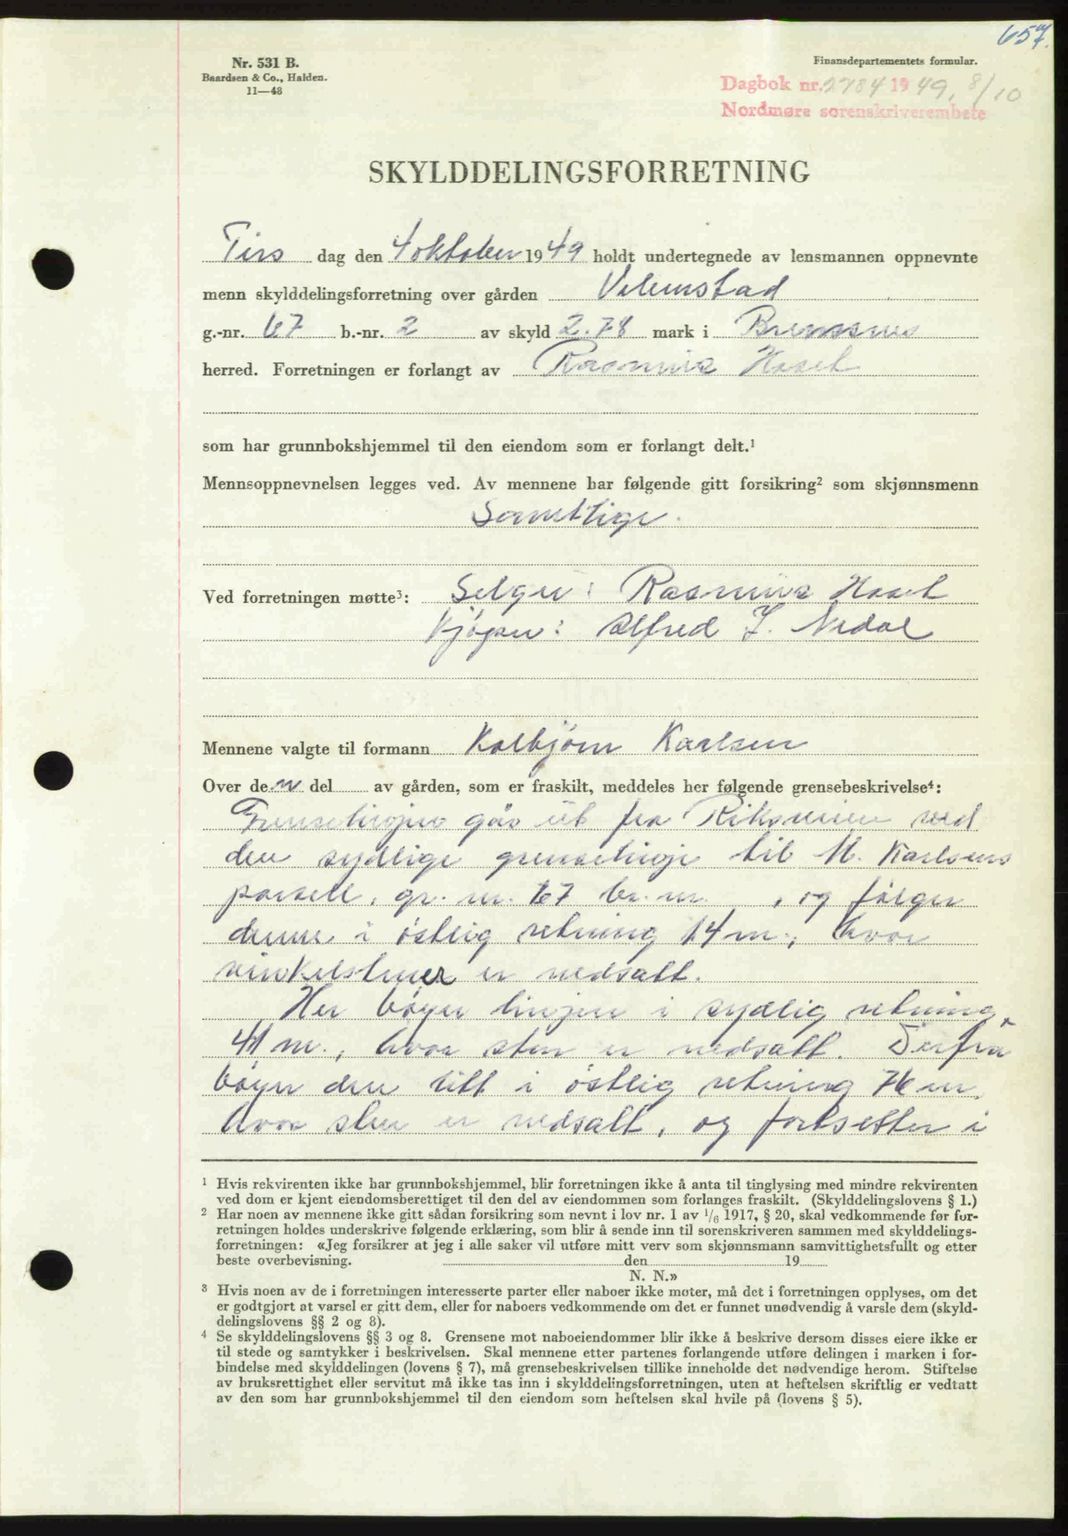 657.
Nr. 531 B.
Baardsen & Co., Halden.
11—48
Finansdepartementets formular.
Dagbok nr. 2784 1949, 8/10
Nordmøre sorenskriverembete
SKYLDDELINGSFORRETNING
Tirs dag den 4 oktober 1949 holdt undertegnede av lensmannen oppnevnte
menn skylddelingsforretning over gården Vilemstad
g.-nr. 67 b.-nr. 2 av skyld 2.78 mark i Bremsnes
herred. Forretningen er forlangt av Rasmus Hosel
som har grunnbokshjemmel til den eiendom som er forlangt delt.¹
Mennsoppnevnelsen legges ved. Av mennene har følgende gitt forsikring² som skjønnsmenn
Samtlige.
Ved forretningen møtte³: Selger: Rasmus Hosel
Kjøper: Alfred J. Nedal
Mennene valgte til formann Kolbjørn Karlsen
Over den del av gården, som er fraskilt, meddeles her følgende grensebeskrivelse⁴:
Grenselinjen går ut fra Riksveien ved
den sydlige grenselinje til M. Karlsens
parsell, gr. nr. 67 br. nr. , og følger
denne i østlig retning 14 m., hvor
vinkelstener er nedsatt.
Her bøyer linjen i sydlig retning
41 m., hvor sten er nedsatt. Derfra
bøyer den litt i østlig retning 76 m.
hvor sten er nedsatt, og fortsetter i
¹ Hvis rekvirenten ikke har grunnbokshjemmel, blir forretningen ikke å anta til tinglysing med mindre rekvirenten
ved dom er kjent eiendomsberettiget til den del av eiendommen som forlanges fraskilt. (Skylddelingslovens § 1.)
² Har noen av mennene ikke gitt sådan forsikring som nevnt i lov nr. 1 av 1/6 1917, § 20, skal vedkommende før for-
retningen holdes underskrive følgende erklæring, som blir å sende inn til sorenskriveren sammen med skylddelings-
forretningen: «Jeg forsikrer at jeg i alle saker vil utføre mitt verv som skjønnsmann samvittighetsfullt og etter
beste overbevisning. den 19
N. N.»
³ Hvis noen av de i forretningen interesserte parter eller naboer ikke møter, må det i forretningen opplyses, om det
er godtgjort at varsel er gitt dem, eller for naboers vedkommende om det er funnet unødvendig å varsle dem (skyld-
delingslovens §§ 2 og 8).
⁴ Se skylddelingslovens §§ 3 og 8. Grensene mot naboeiendommer blir ikke å beskrive dersom disses eiere ikke er
til stede og samtykker i beskrivelsen. Skal mennene etter partenes forlangende utføre delingen i marken i for-
bindelse med skylddelingen (lovens § 7), må grensebeskrivelsen tillike inneholde det nødvendige herom. Stiftelse
av bruksrettighet eller servitut må ikke tas inn i skylddelingsforretningen, uten at heftelsen skriftlig er vedtatt
av den som har grunnbokshjemmel til den eiendom som heftelsen skal hvile på (lovens § 5).